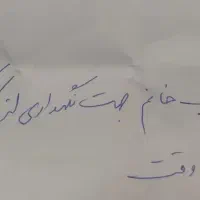 خانم جهت نگهداری
وقت